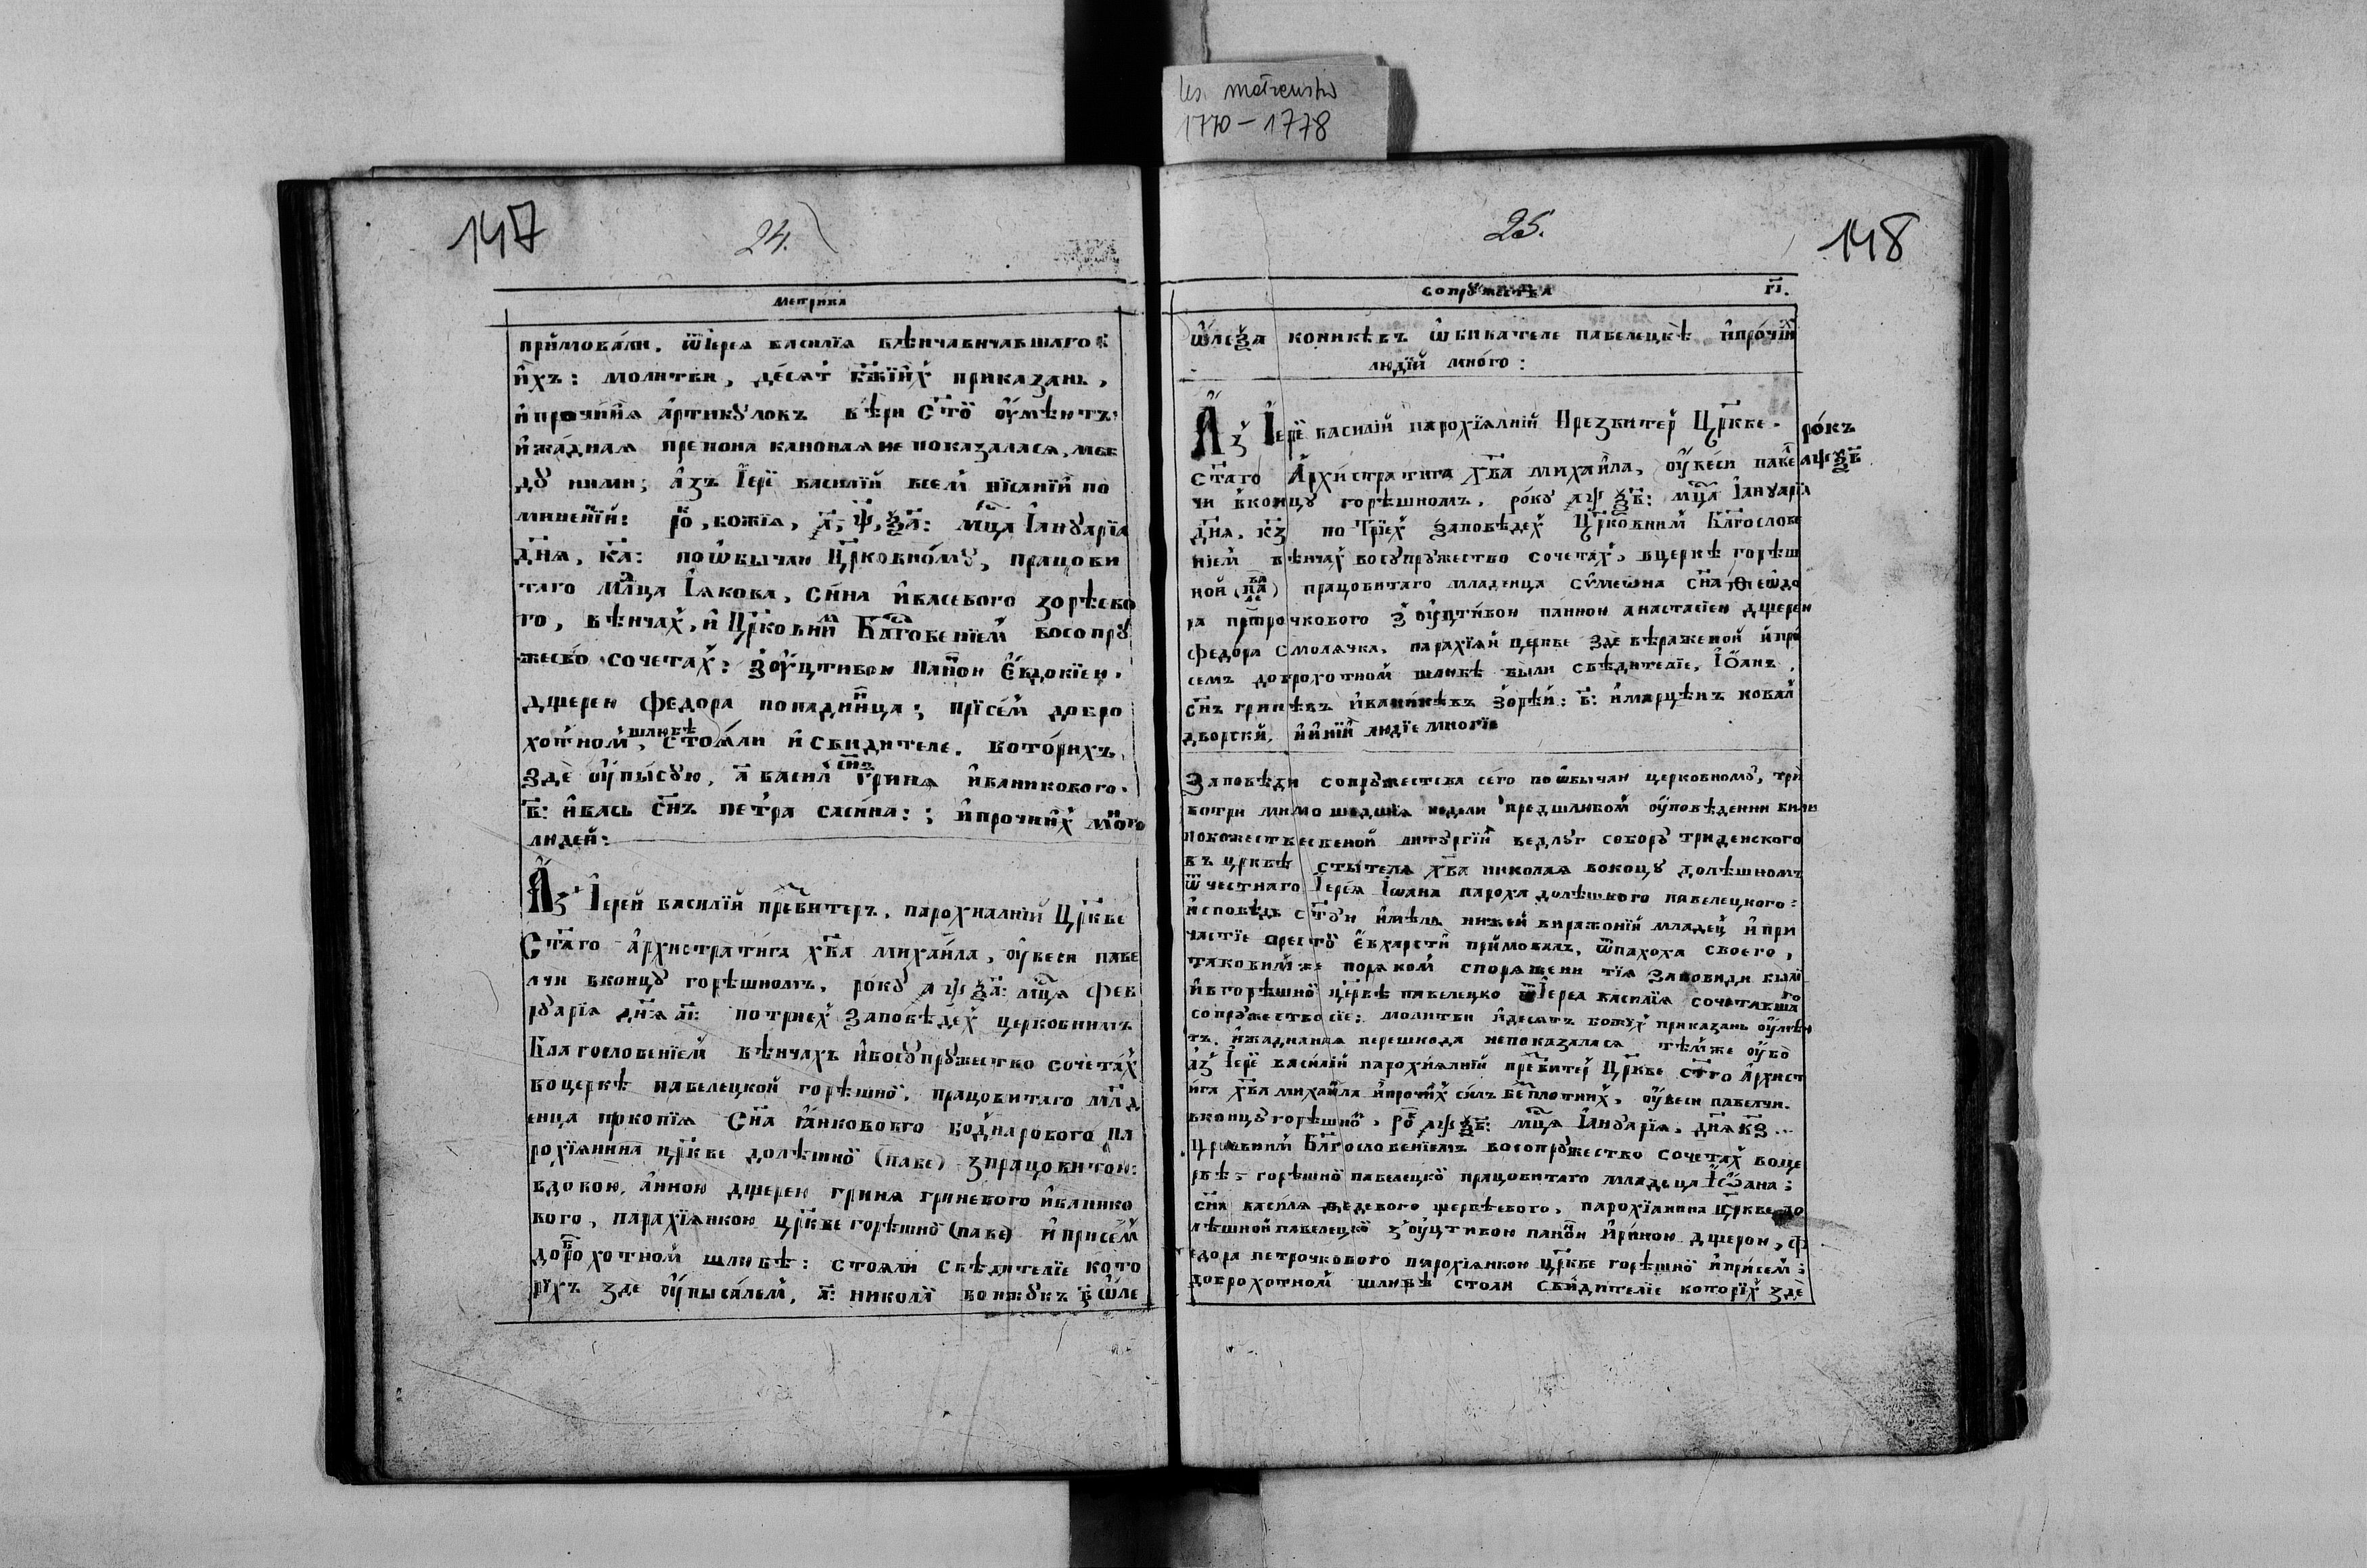 Us. matrensko
1770-1778
147
24.
Метрика
приймовали. ѿ Іерея василїя вѣнчавшаго
ихъ: молитви, десят бжїихъ приказань,
и прочиия артикуловъ вѣри стои оумѣютъ,
и жадная препона каноная не показалася, меж
ду ними; азъ Іерїй василїй всем пїсанїй по
миненїй: ро, божїя, а, ѱ, ѯа: мца Іануарїя
дня, ка: по ѡбычаю Црковному, працови
таго млца Іакова, сина ивасевого зорѣево
го, вѣнчах, и Црковним Блгвенїем восопру
жесво сочетах: з оуцтивою панною Евдокїею.
дщерею федора попадинца; прїсем добро
хотном шлюбѣ, стояли и свидителе. которихъ
зде оупысую, а васил снъ гриня иваникового.
в: ивась снъ петра сасина:; и прочиих мого
людей:
Аз Іерей василїй презвитеръ, парохиалнїй Цркве
Стаго архистратига хва михаила, оу веси паве
лчи в концу горѣшномъ, року аѱѯа: мца фев
руарїя дня аі: по триех заповѣдех церковнимъ
Благословенїем вѣнчахъ и восупружество сочетах
во церкѣ павелецкой горѣшной, працовитаго млад
енца прокопїя Сна іанкового воднарового па
рохїянина цркве долѣшной (паве) з працовитою:
вдовою, анною дщерею гриня гриневого иванико
вого, парахїянкою цркве горѣшной (паве) и присем
доброхотном шлюбѣ: стояли свѣдителїе кото
рихъ зде оуписалем, а: никола вонжукъ в: ѡле
25.
118
сопружества гі.
ѡлеѯа коникѣвъ ѡбикателе павелецкѣ и прочїи
людїй много:
Аз Іерїй василїй парохїялнїй Презвитер Цркве рокъ
стаго Архистратига хва михаила, оу веси павел аѱѯв
чи в концу горѣшномъ, року аѱѯв: мца Іануарїа
дня, кз по Трїех заповѣдех Црковним Благослове
нїем вѣнчах восупружество сочетах, в церкѣ горѣш
ной (пав) працовитаго младенца сүмеѡна сна ѳеѡдо
ра прочкового з оуцтивою панною анастасїею дщерею
федора смолячка, парахїяй церкве зде вѣраженой и при
семъ доброхотном шлюбѣ были свѣдителїе, Іѡанъ,
снъ гринѣвъ иваникѣвъ зорѣй: в: и марцѣнъ ковал
дворскй, и инїй людїе многїе
Заповѣди сопружества сего по ѡбычаю церковному, три
котри мимошедшїя недели пред шлюбом оуповѣдении били
по божественой литургїй ведлуг собору триденского
въ црквѣ стытеля хва николая во концу долѣшномъ
ѿ честнаго Іерея Іѡана пароха долѣшного павелецкого:
исповѣдь стую имѣлъ нижей виражонїй младец и при
частїе прест Евхарсти приймовалъ, ѿ пахоха своего,
таковимже поряком споряжени тїя заповиди были
и в горѣшной церквѣ павелецко ѿ Іерея василїя сочетавшаго
сопружество сїе; молитви и десять божух приказань оумѣю
тъ. и жадианая перешкода не показалася тѣмже оубо
аз Іерїй василїй парохиялнїй презвитер Цркве стго Архист
ига хва михаила и прочих силъ безплотних, оу веси павелчи.
в концу горѣшной, ро аѱѯв: мца Іануарїя, дня кз
Црковним Благословенїемъ восопружество сочетах во це
рвѣ горѣшной павелецкой працовитаго младеца Іѡана;
сна василя федевого щервѣевого, парохїанина цркве до
лѣшной павелецкой з оуцтивою панною Ириною дщерою, ф
едора петрочкового парохїянкою цркве горѣшной и присем;
доброхотном шлюбѣ стояли свидителїе которїх зде